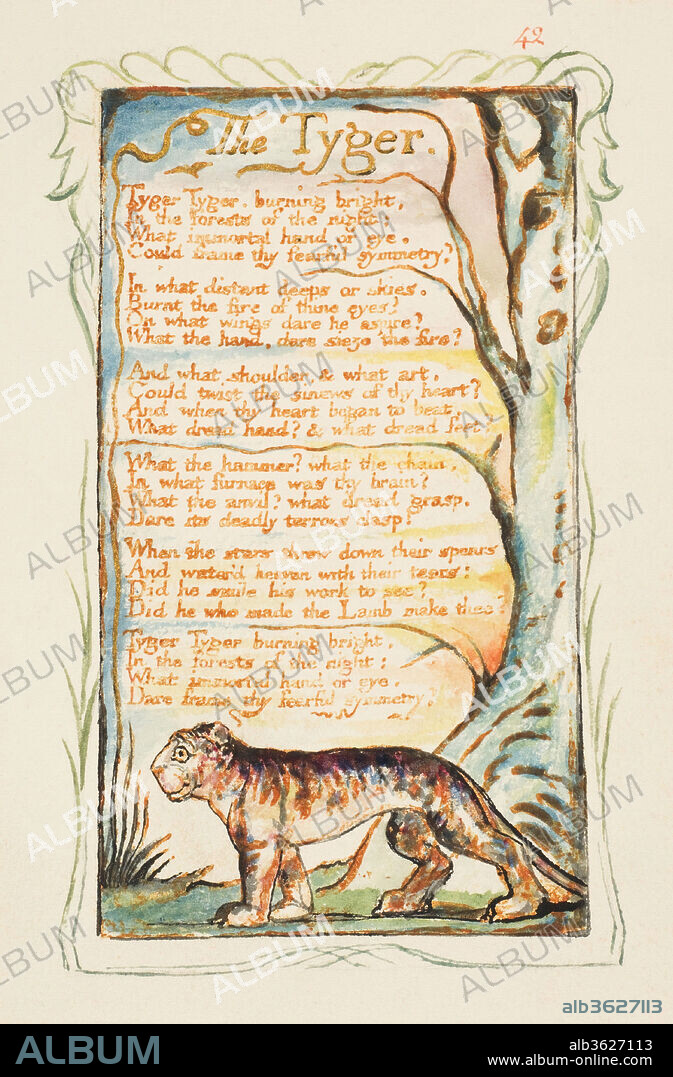 42
The Tyger.
Tyger Tyger. burning bright,
In the forests of the night:
What immortal hand or eye.
Could frame thy fearful symmetry?
In what distant deeps or skies.
Burnt the fire of thine eyes?
On what wings dare he aspire?
What the hand, dare sieze the fire?
And what shoulder, & what art,
Could twist the sinews of thy heart?
And when thy heart began to beat,
What dread hand? & what dread feet?
What the hammer? what the chain,
In what furnace was thy brain?
What the anvil? what dread grasp,
Dare its deadly terrors clasp?
When the stars threw down their spears
And water'd heaven with their tears:
Did he smile his work to see?
Did he who made the Lamb make thee?
Tyger Tyger burning bright,
In the forests of the night:
What immortal hand or eye,
Dare frame thy fearful symmetry?
alb3627113
ALBUM
alb3627113
www.album-online.com